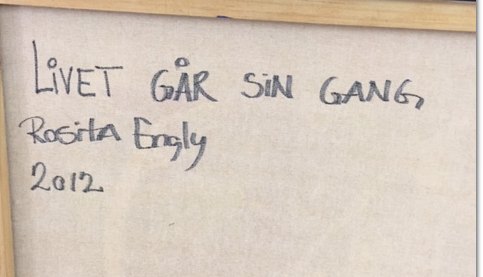 LIVET GÅR SIN GANG,
Rosita Engly
2012